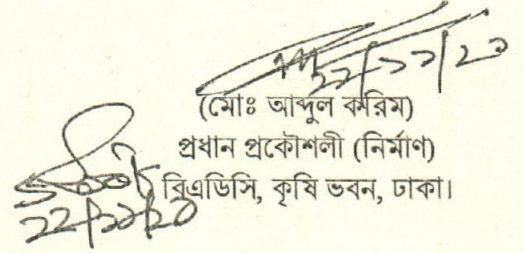 ২২/১১/২০
(মোঃ আব্দুল করিম)
প্রধান প্রকৌশলী (নির্মাণ)
বিএডিসি, কৃষি ভবন, ঢাকা।
২২/১১/২০